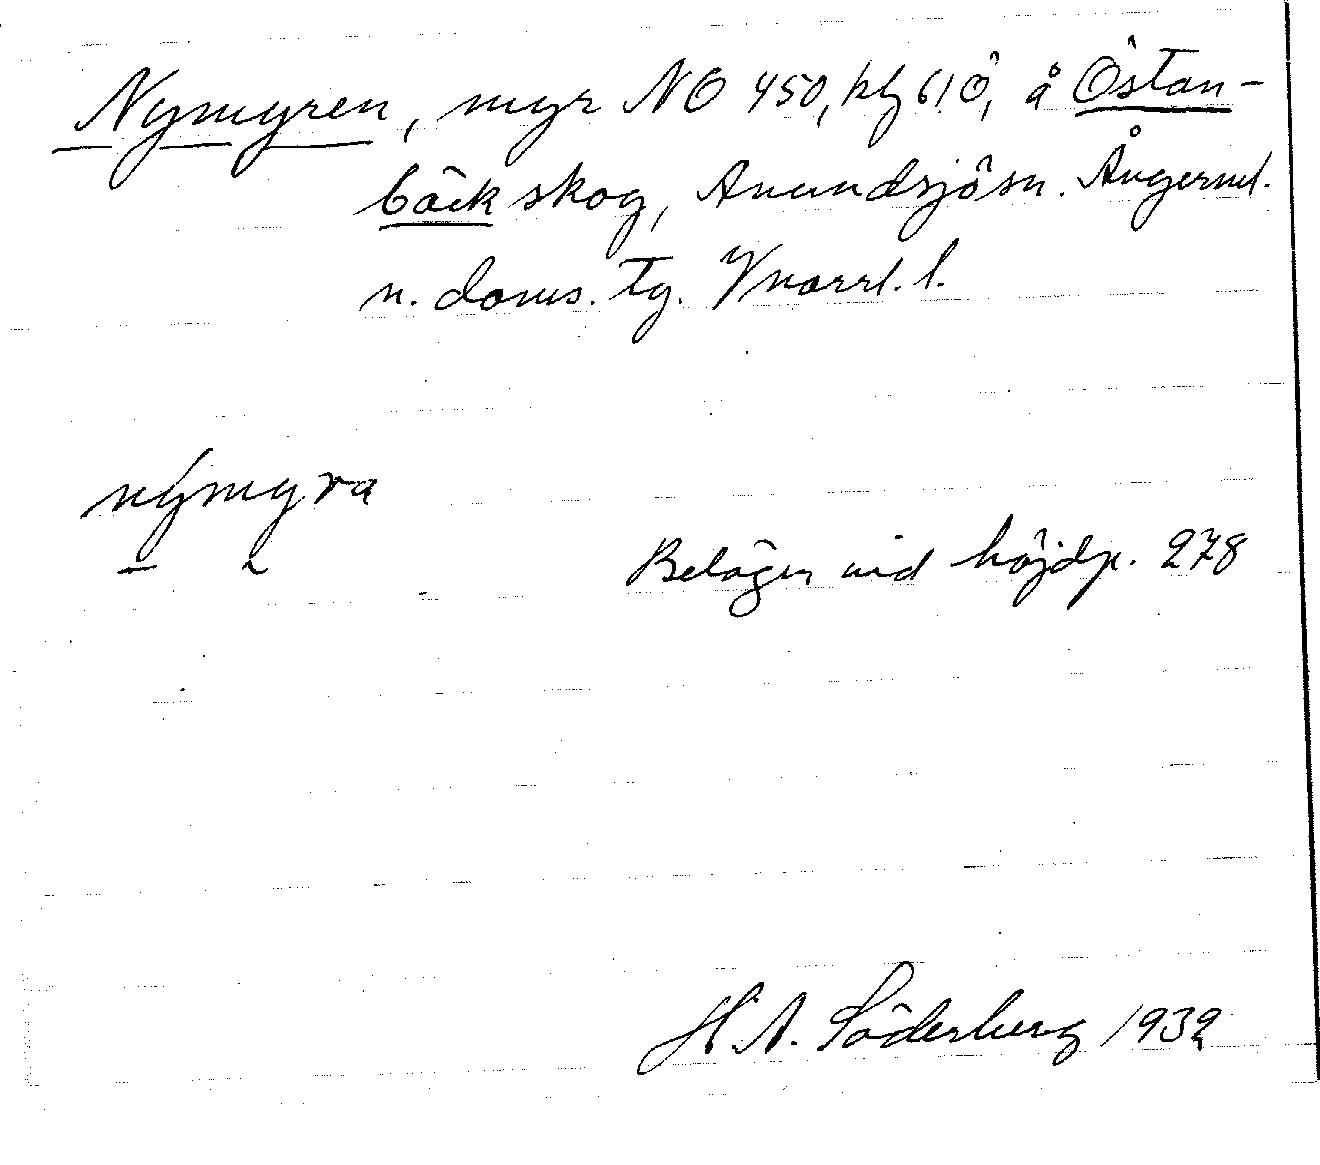 Nymyren, myr NO 450, hbg 61Ö, å Östan-
bäck skog, Anundsjö sn. Ångerml.
n. doms. tg. Vnorrl. l.
nýmyra
Belägen vid höjdp. 278
H. A. Söderberg 1932